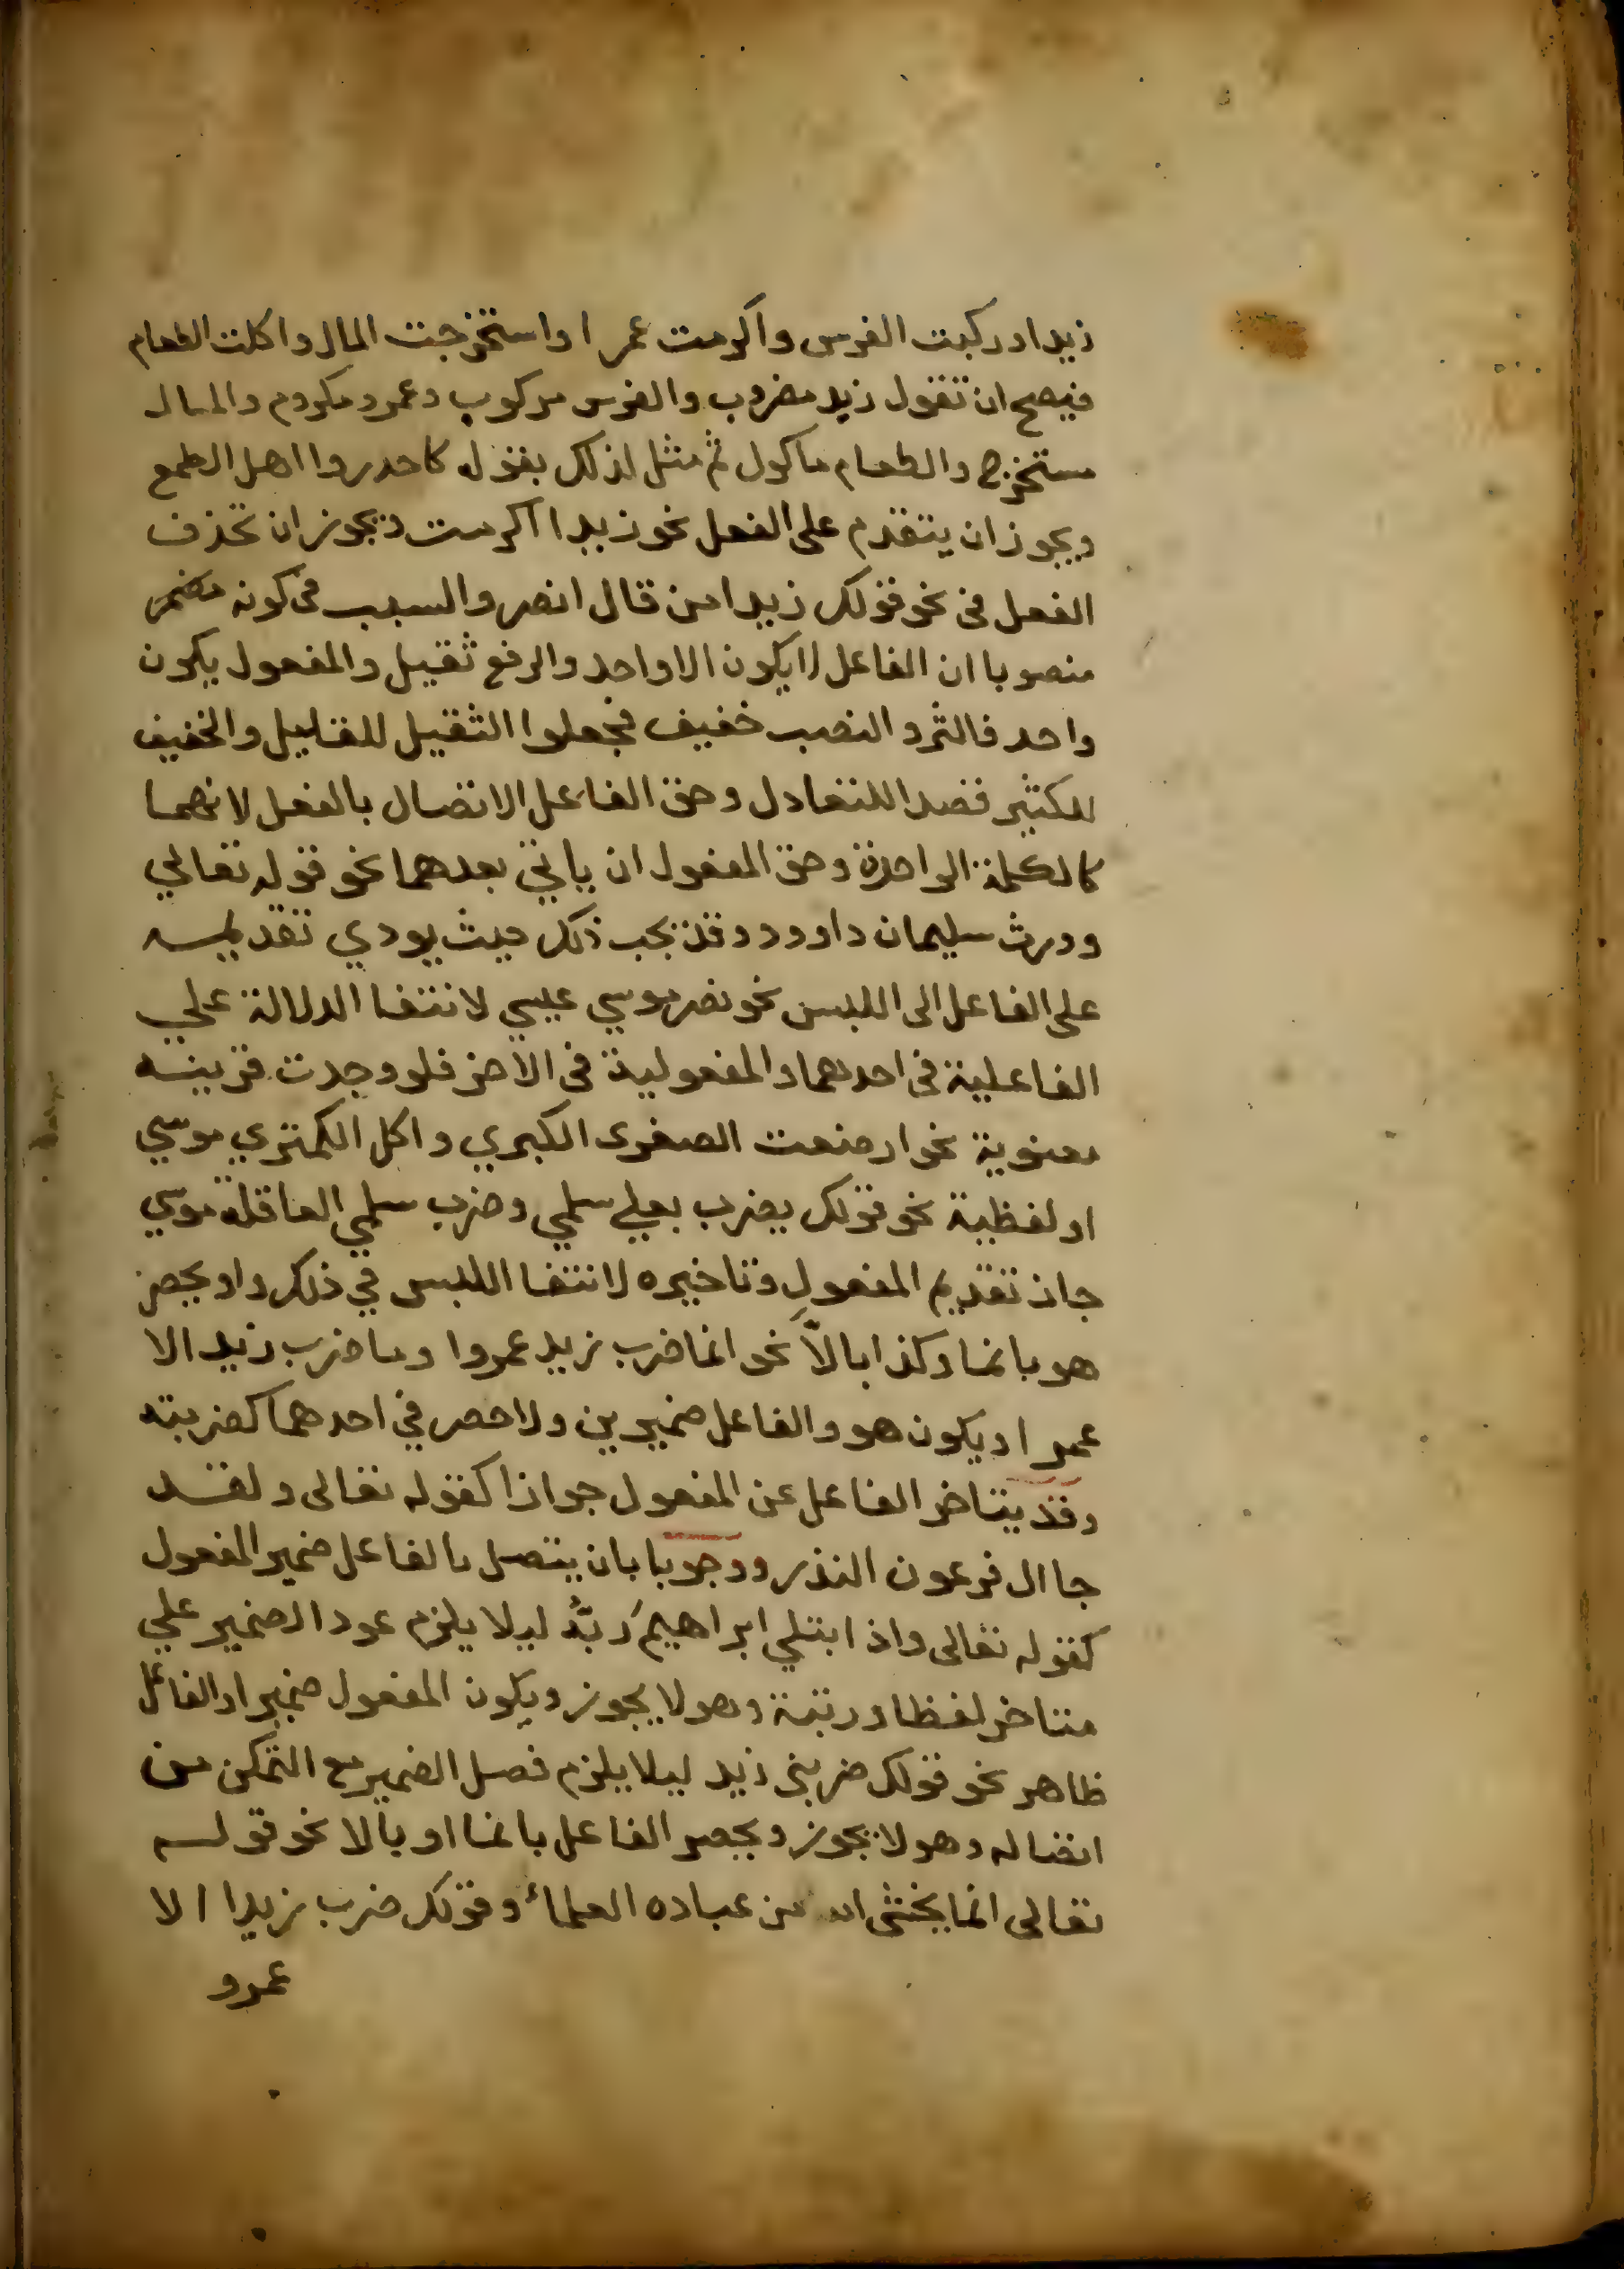 زيدا وركبت الفرس واكرمت عمرا واستخرجت المال واكلت الطعام
فيصح ان تقول زيد مضروب والفرس مركوب وعمرو مكروم والمال
مستخرج والطعام ماكول ثم مثل لذلك بقوله كاحدروا اهل الطمع
ويجوز ان يتقدم على الفعل نحو زيدا اكرمت ويجوز ان تحذف
الفعل في نحو قولك زيدا من قال انصر والسبب في كونه مضمر
منصوبا ان الفاعل لا يكون الا واحد والرفع ثقيل والمفعول يكون
واحد فاكثر والنصب خفيف فجعلوا الثقيل للقليل والخفيف
للكثير قصدا للتعادل وحق الفاعل الاتصال بالفعل لانهما
كالكلمة الواحدة وحق المفعول ان ياتي بعدهما نحو قوله تعالي
وورث سليمان داوود وقد يجب ذلك حيث يودي تقديمه
على الفاعل الى اللبس نحو نصر موسي عيسي لانتفا الدلالة علي
الفاعلية في احدهما والمفعولية في الاخر فلو وجدت قرينه
معنوية نحو ارضعت الصغرى الكبري واكل الكمثري موسي
او لفظية نحو قولك يضرب يعلي سلمي وضرب سلمي العاقلة موسي
جاز تقديم المفعول وتاخيره لانتفا اللبس في ذلك واو يحصر
هو بانما وكذا بالاَّ نحو انما ضرب زيد عمروا وما ضرب زيد الا
عمرا ويكون هو والفاعل ضميرين ولا حصر في احدهما كضربته
وقد يتاخر الفاعل عن المفعول جوازا كقوله تعالى ولقد
جا ال فرعون النذر ووجوبا بان يتصل بالفاعل ضمير المفعول
كقوله تعالى واذ ابتلي ابراهيمَ ربُّه ليلا يلزم عود الضمير علي
متاخر لفظا ورتبة وهو لا يجوز ويكون المفعول ضميرا والفاعل
ظاهر نحو قولك ضربني زيد ليلا يلزم فصل الضمير مع التمكن من
اتصاله وهو لا يجوز ويحصر الفاعل بانما او بالا نحو قوله
تعالى انما يخشى الله من عباده العلماء وقولك ضرب زيدا الا
عمرو